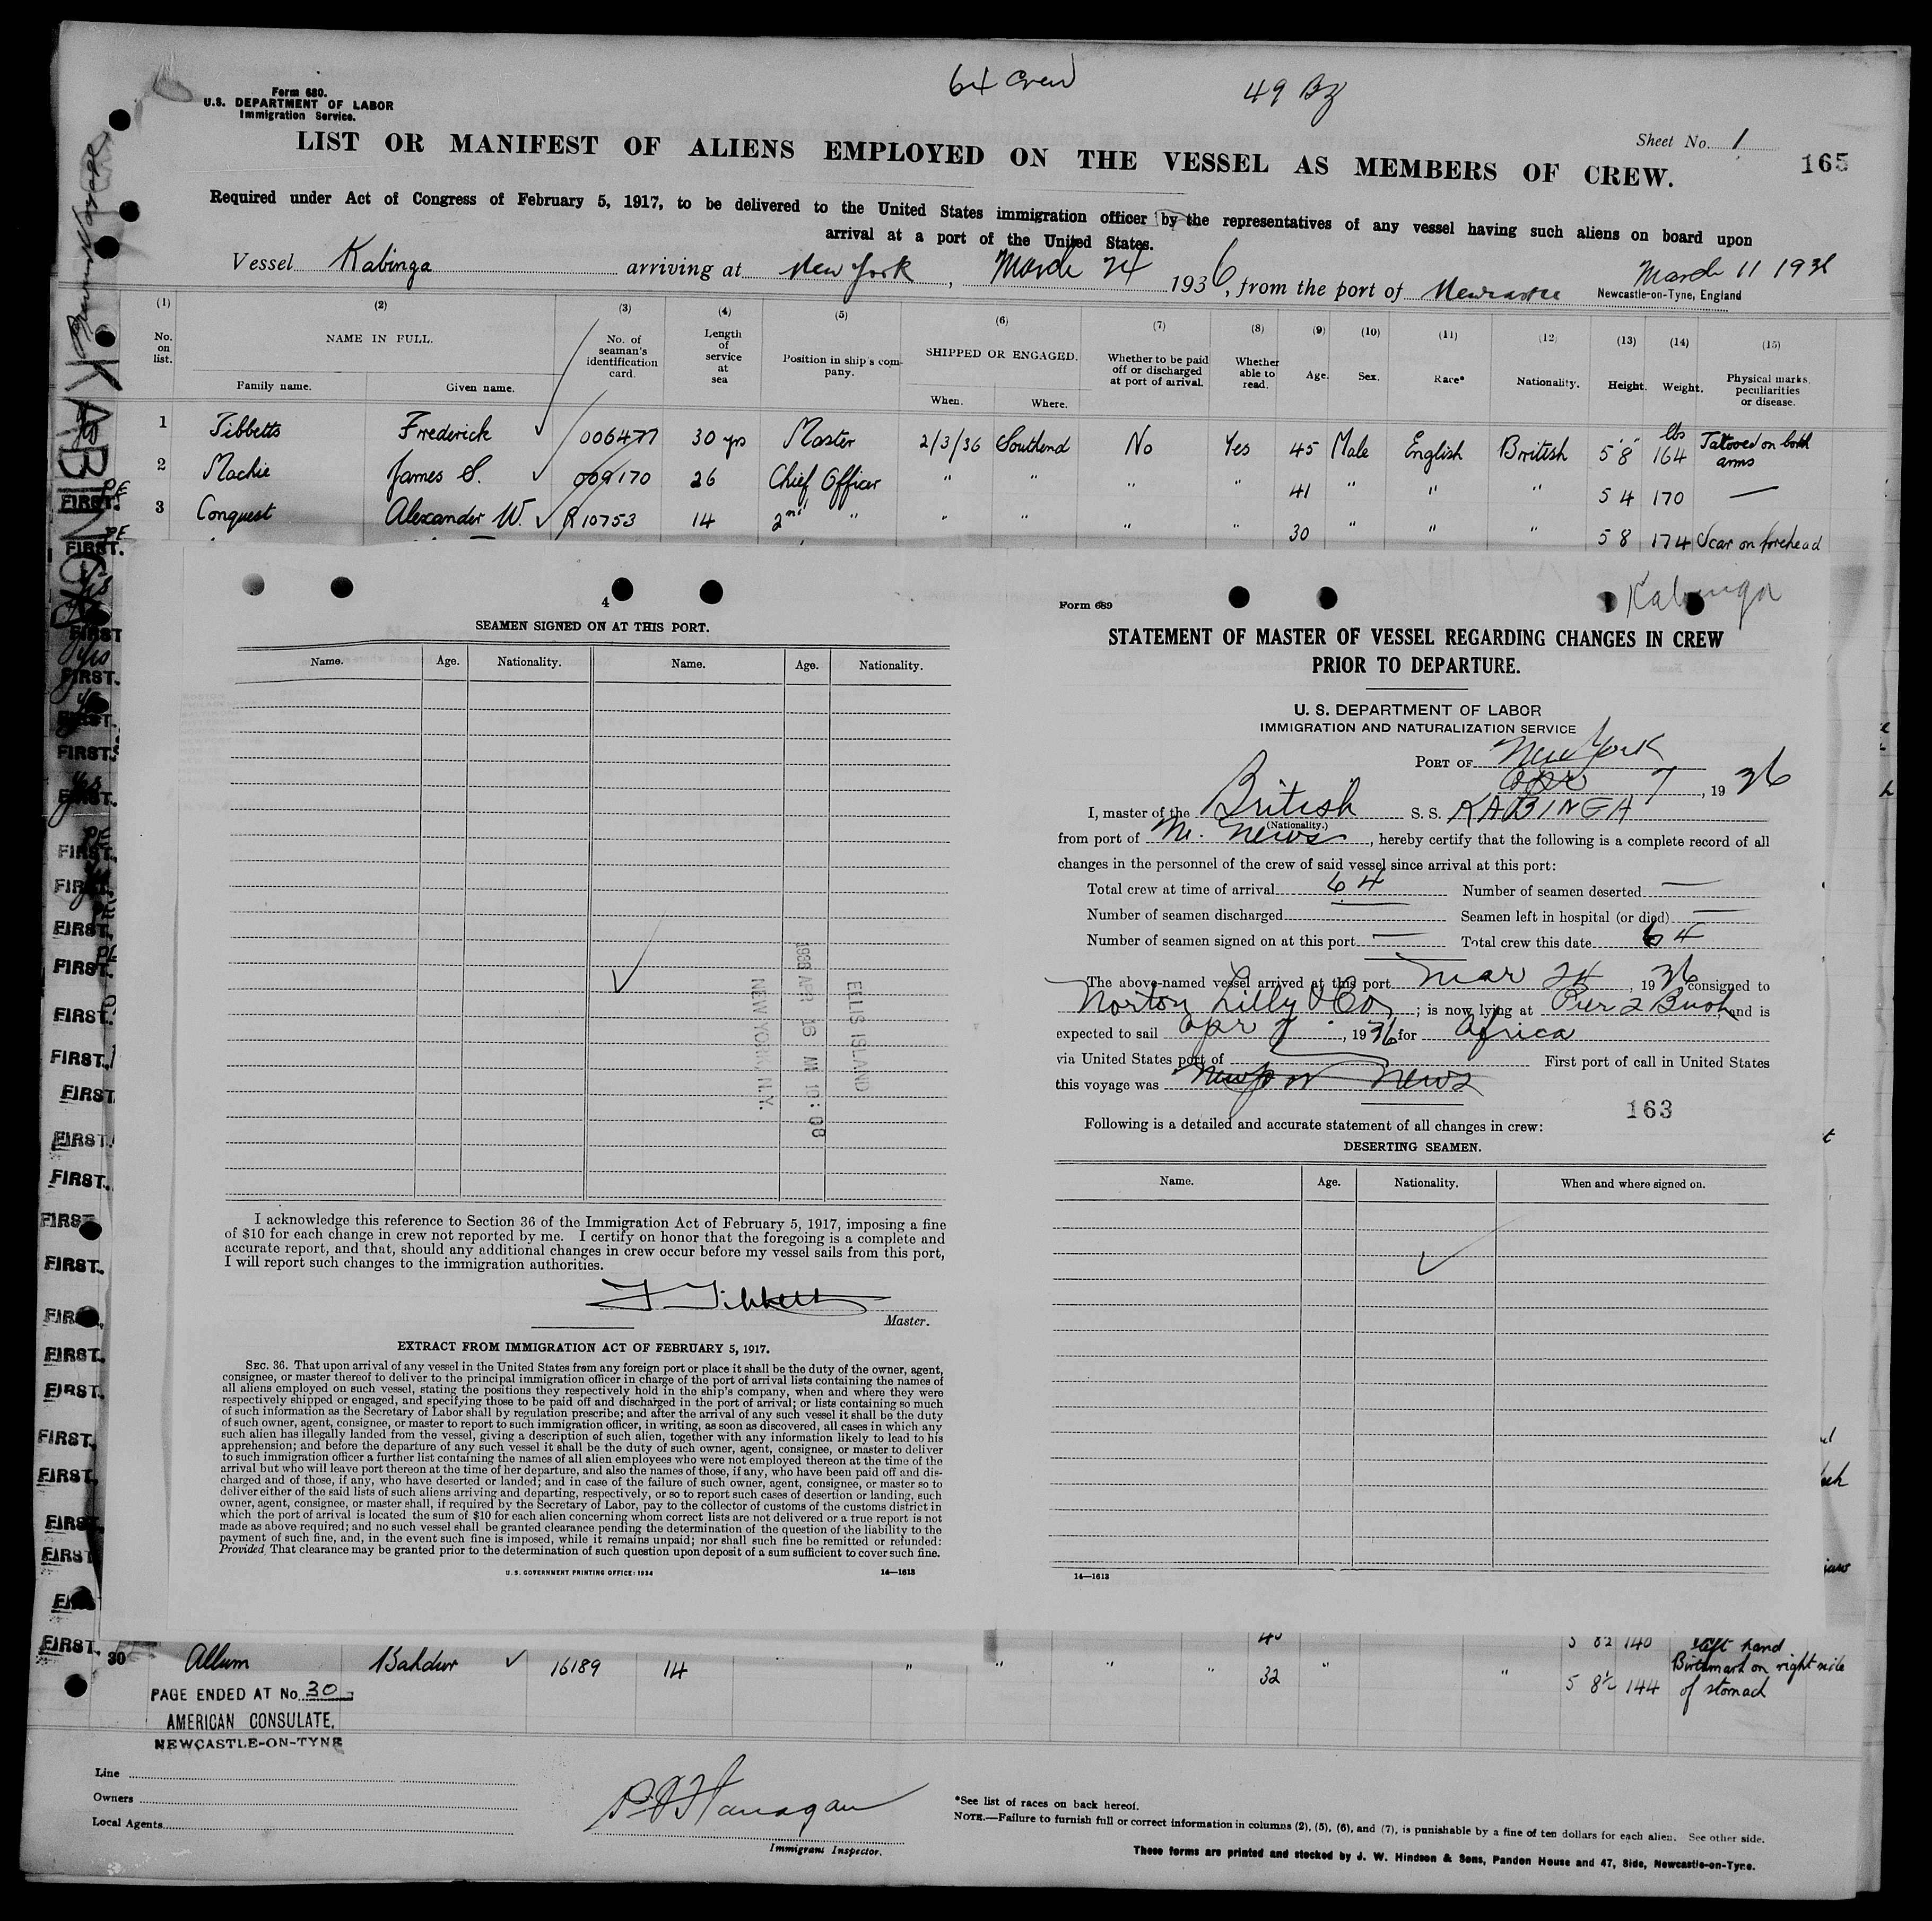 64 Crew
49 Bz
Form 680.
U.S. DEPARTMENT OF LABOR
Immigration Service.
Sheet No. 1
165
LIST OR MANIFEST OF ALIENS EMPLOYED ON THE VESSEL AS MEMBERS OF CREW.
Required under Act of Congress of February 5, 1917, to be delivered to the United States immigration officer by the representatives of any vessel having such aliens on board upon
arrival at a port of the United States.
Vessel Kabinga arriving at New York, March 24 1936, from the port of Newcastle
March 11 1936
Newcastle-on-Tyne, England
(1) (2) (3) (4) (5) (6) (7) (8) (9) (10) (11) (12) (13) (14) (15)
No. on list. NAME IN FULL. No. of seaman's identification card. Length of service at sea Position in ship's company. SHIPPED OR ENGAGED. Whether to be paid off or discharged at port of arrival. Whether able to read. Age. Sex. Race* Nationality. Height. Weight. Physical marks, peculiarities or disease.
Family name. Given name. When. Where.
1 Tibbetts Frederick 006477 30 yrs Master 2/3/36 Southend No Yes 45 Male English British 5' 8" lbs 164 Tatooed on both arms
2 Mackie James S. 009170 26 Chief Officer " " " " 41 " " " 5 4 170 —
3 Conquest Alexander W. R10753 14 2nd " " " " " 30 " " " 5 8 174 Scar on forehead
KABINGA
FIRST.
4
SEAMEN SIGNED ON AT THIS PORT.
Name. Age. Nationality. Name. Age. Nationality.
ELLIS ISLAND
1936 APR 16 AM 10:08
NEW YORK, N.Y.
I acknowledge this reference to Section 36 of the Immigration Act of February 5, 1917, imposing a fine
of $10 for each change in crew not reported by me. I certify on honor that the foregoing is a complete and
accurate report, and that, should any additional changes in crew occur before my vessel sails from this port,
I will report such changes to the immigration authorities.
F Tibbetts
Master.
EXTRACT FROM IMMIGRATION ACT OF FEBRUARY 5, 1917.
SEC. 36. That upon arrival of any vessel in the United States from any foreign port or place it shall be the duty of the owner, agent,
consignee, or master thereof to deliver to the principal immigration officer in charge of the port of arrival lists containing the names of
all aliens employed on such vessel, stating the positions they respectively hold in the ship's company, when and where they were
respectively shipped or engaged, and specifying those to be paid off and discharged in the port of arrival; or lists containing so much
of such information as the Secretary of Labor shall by regulation prescribe; and after the arrival of any such vessel it shall be the duty
of such owner, agent, consignee, or master to report to such immigration officer, in writing, as soon as discovered, all cases in which any
such alien has illegally landed from the vessel, giving a description of such alien, together with any information likely to lead to his
apprehension; and before the departure of any such vessel it shall be the duty of such owner, agent, consignee, or master to deliver
to such immigration officer a further list containing the names of all alien employees who were not employed thereon at the time of the
arrival but who will leave port thereon at the time of her departure, and also the names of those, if any, who have been paid off and dis-
charged and of those, if any, who have deserted or landed; and in case of the failure of such owner, agent, consignee, or master so to
deliver either of the said lists of such aliens arriving and departing, respectively, or so to report such cases of desertion or landing, such
owner, agent, consignee, or master shall, if required by the Secretary of Labor, pay to the collector of customs of the customs district in
which the port of arrival is located the sum of $10 for each alien concerning whom correct lists are not delivered or a true report is not
made as above required; and no such vessel shall be granted clearance pending the determination of the question of the liability to the
payment of such fine, and, in the event such fine is imposed, while it remains unpaid; nor shall such fine be remitted or refunded:
Provided, That clearance may be granted prior to the determination of such question upon deposit of a sum sufficient to cover such fine.
U. S. GOVERNMENT PRINTING OFFICE: 1934 14—1613
Form 689
Kabinga
STATEMENT OF MASTER OF VESSEL REGARDING CHANGES IN CREW
PRIOR TO DEPARTURE.
U. S. DEPARTMENT OF LABOR
IMMIGRATION AND NATURALIZATION SERVICE
PORT OF New York
Apr 7, 1936
I, master of the British S. S. KABINGA
(Nationality.)
from port of N. News, hereby certify that the following is a complete record of all
changes in the personnel of the crew of said vessel since arrival at this port:
Total crew at time of arrival 64 Number of seamen deserted —
Number of seamen discharged — Seamen left in hospital (or died) —
Number of seamen signed on at this port — Total crew this date 64
The above-named vessel arrived at this port Mar 24, 1936 consigned to
Norton Lilly & Co; is now lying at Pier 2 Bush, and is
expected to sail Apr 7, 1936 for Africa
via United States port of First port of call in United States
this voyage was Newport News
163
Following is a detailed and accurate statement of all changes in crew:
DESERTING SEAMEN.
Name. Age. Nationality. When and where signed on.
14—1613
40 5 8½ 140 left hand
30 Allum Bahdur 16189 14 " " " " 32 " " 5 8½ 144 Birthmark on right side of stomach
PAGE ENDED AT No. 30
AMERICAN CONSULATE,
NEWCASTLE-ON-TYNE
Line
Owners
Local Agents
Flanagan
Immigrant Inspector.
*See list of races on back hereof.
NOTE.—Failure to furnish full or correct information in columns (2), (5), (6), and (7), is punishable by a fine of ten dollars for each alien. See other side.
These forms are printed and stocked by J. W. Hindson & Sons, Pandon House and 47, Side, Newcastle-on-Tyne.